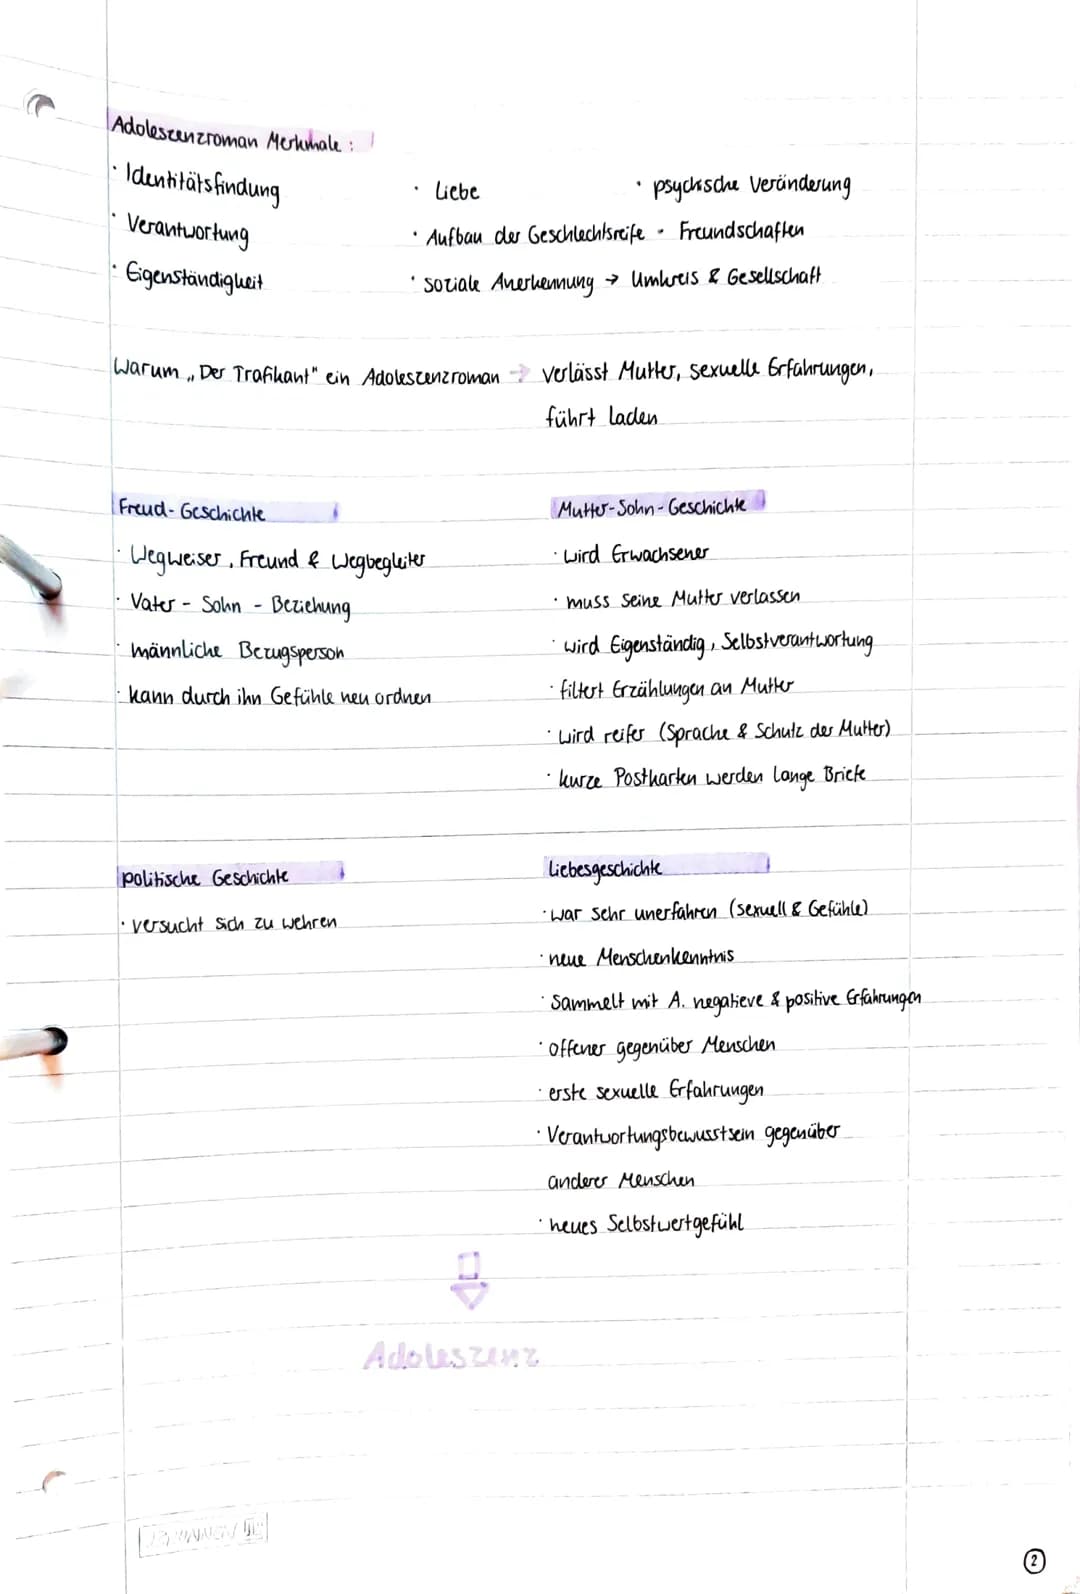 Adoleszenzroman Merkmale :
· Identitätsfindung · Liebe · psychische Veränderung
· Verantwortung · Aufbau der Geschlechtsreife · Freundschaften
· Eigenständigkeit · soziale Anerkennung → Umkreis & Gesellschaft
Warum „Der Trafikant" ein Adoleszenzroman → verlässt Mutter, sexuelle Erfahrungen,
führt laden
Freud-Geschichte
· Wegweiser, Freund & Wegbegleiter
· Vater - Sohn - Beziehung
· männliche Bezugsperson
· kann durch ihn Gefühle neu ordnen
Mutter-Sohn-Geschichte
· wird Erwachsener
· muss seine Mutter verlassen
· wird Eigenständig, Selbstverantwortung
· filtert Erzählungen an Mutter
· wird reifer (Sprache & Schutz der Mutter)
· kurze Postkarten werden lange Briefe
politische Geschichte
· versucht sich zu wehren
Liebesgeschichte
· war sehr unerfahren (sexuell & Gefühle)
· neue Menschenkenntnis
· sammelt mit A. negatieve & positive Erfahrungen
· offener gegenüber Menschen
· erste sexuelle Erfahrungen
· Verantwortungsbewusstsein gegenüber
anderer Menschen
· neues Selbstwertgefühl
Adoleszenz
2